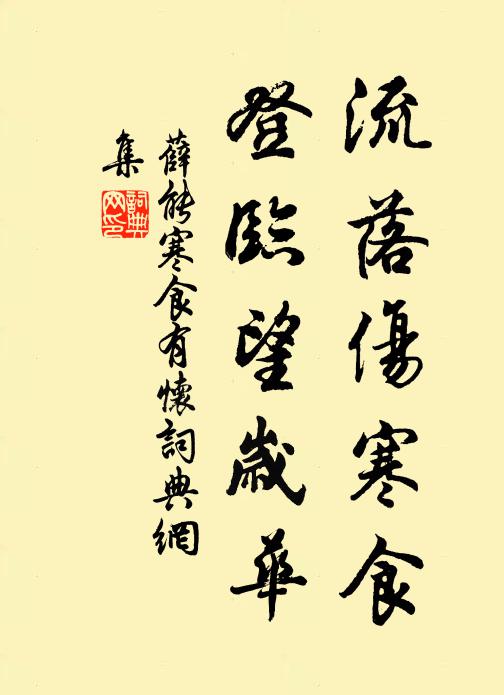 流落傷寒食
登臨望歲華
薛能寒食有懷詞典網
集
詞典
网印